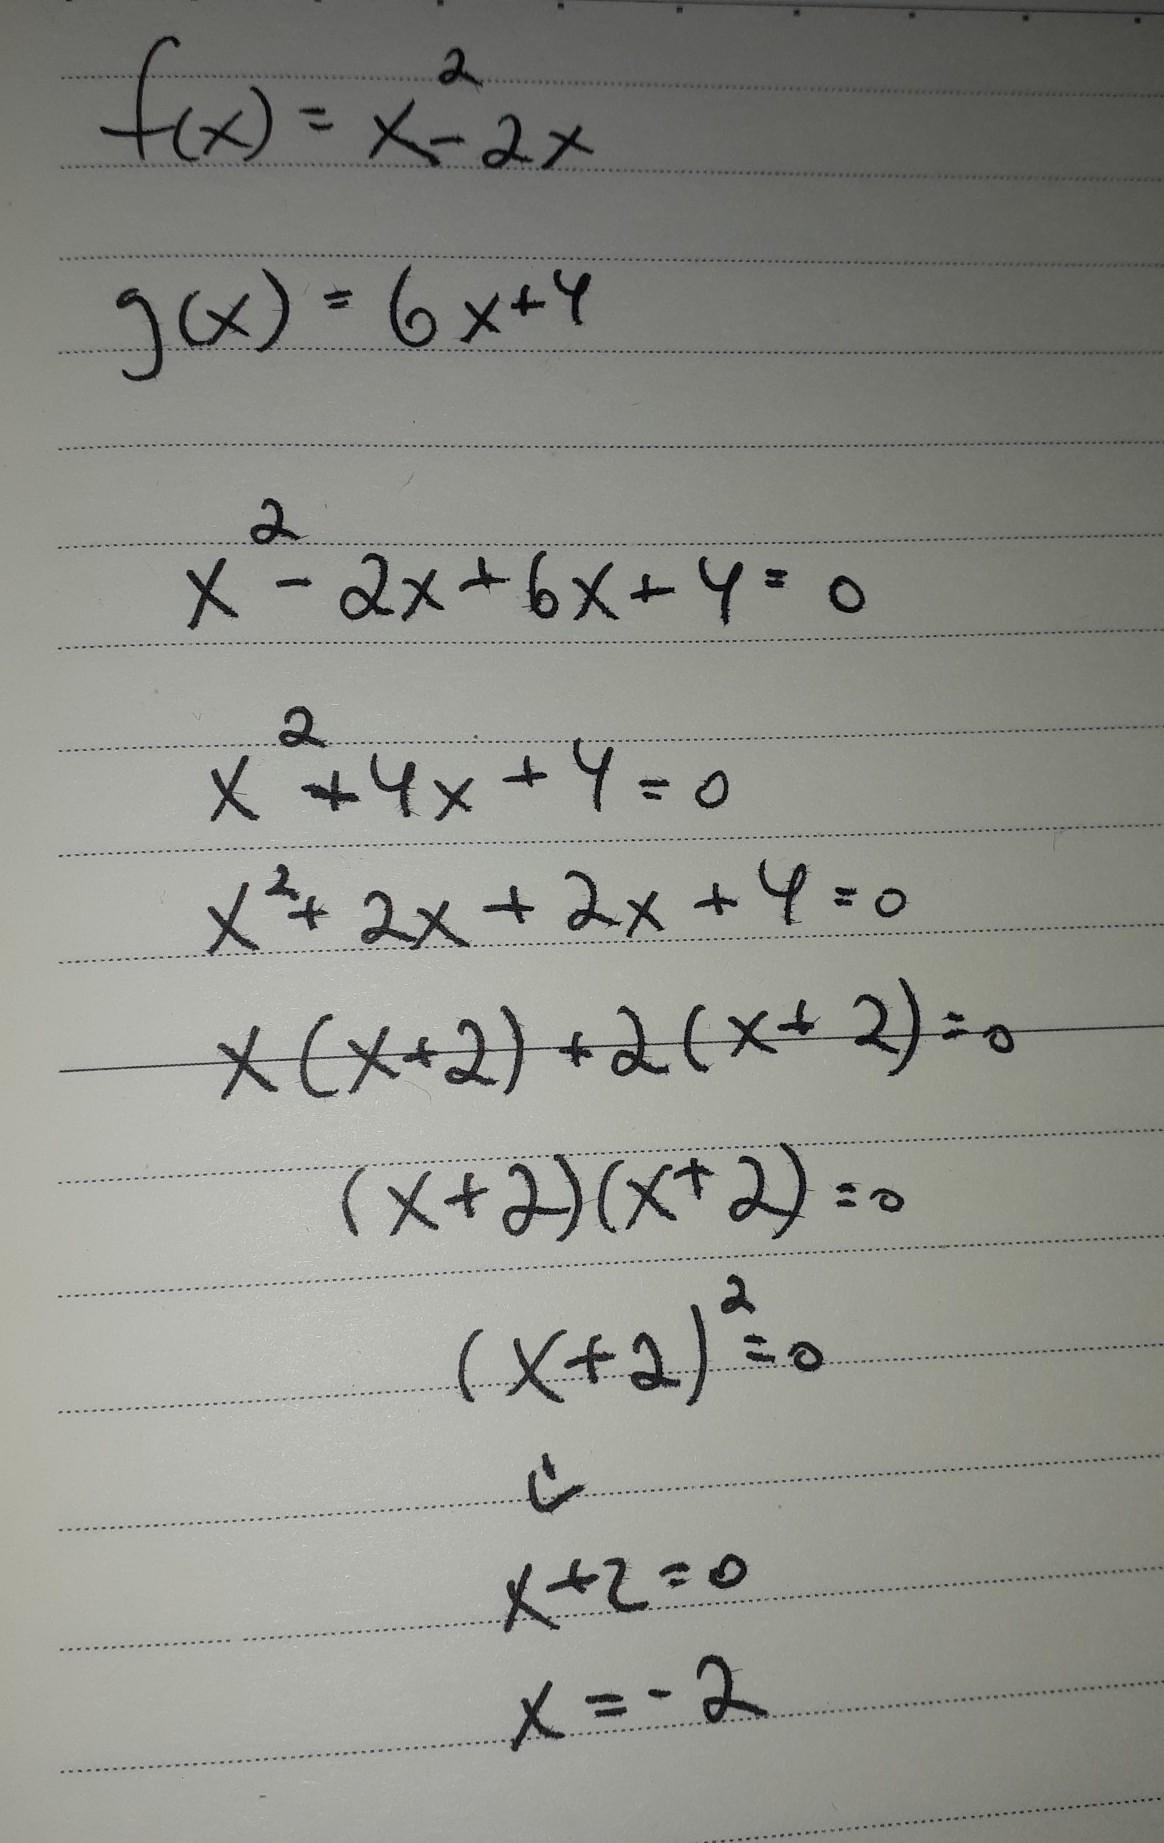 f(x) = x² - 2x
g(x) = 6x + 4
x² - 2x + 6x + 4 = 0
x² + 4x + 4 = 0
x² + 2x + 2x + 4 = 0
x(x+2) + 2(x+2) = 0
(x+2)(x+2) = 0
(x+2)² = 0
x+2 = 0
x = -2